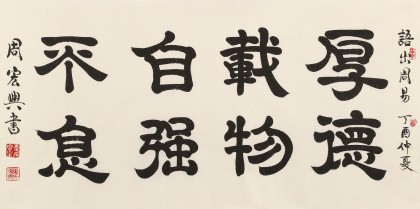 語出周易 丁酉仲夏
厚德
載物
自强
不息
周宏興書